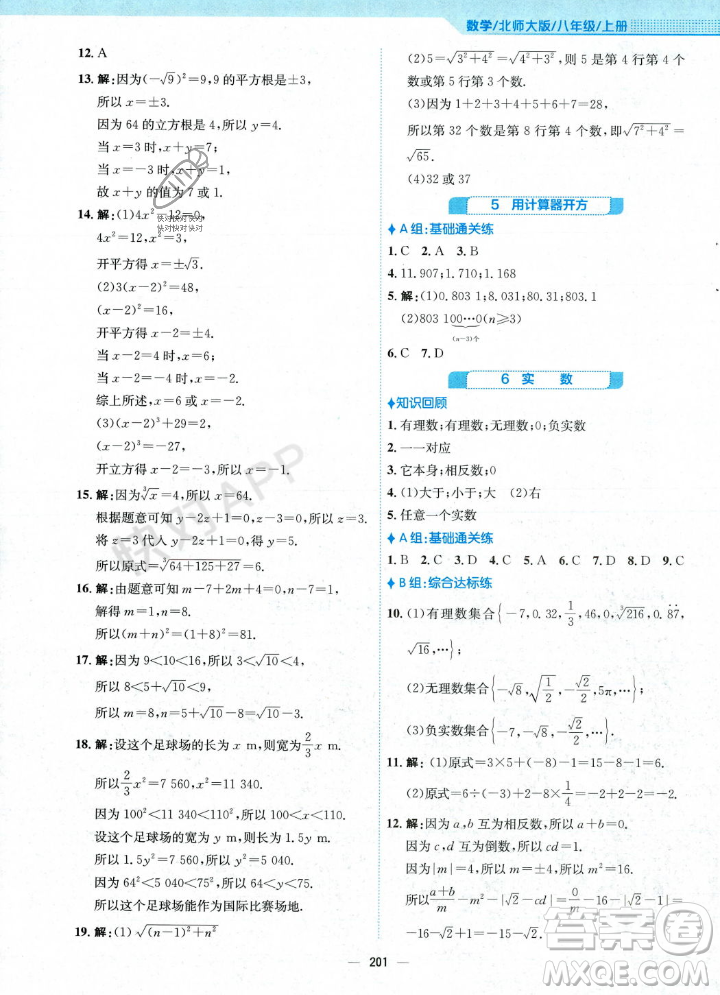 数学/北师大版/八年级/上册
12. A
13. 解:因为(-√9)²=9,9的平方根是±3,
所以 x=±3.
因为 64 的立方根是 4,所以 y=4.
当 x=3 时,x+y=7;
当 x=-3 时,x+y=1.
故 x+y 的值为 7 或 1.
14. 解:(1)4x²-12=0,
4x²=12,x²=3,
开平方得 x=±√3.
(2)3(x-2)²=48,
(x-2)²=16,
开平方得 x-2=±4.
当 x-2=4 时,x=6;
当 x-2=-4 时,x=-2.
综上所述,x=6 或 x=-2.
(3)(x-2)³+29=2,
(x-2)³=-27,
开立方得 x-2=-3,
x=-1.
15. 解:因为∛x=4,所以 x=64.
根据题意可知 y-2z+1=0,z-3=0.
将 z=3 代入 y-2z+1=0,得 y=5,
所以原式=∛(64+125+27)=6.
16. 解:由题意可知 m-7+2m+4=0,
解得 m=1,n=8.
所以(m+n)²=(1+8)²=81.
17. 解:因为 9<10<16,所以 3<√10<4.
所以 8<5+√10<9,
所以 m=8,n=5+√10-8=√10-3.
18. 解:设这个足球场的长为 x m,则宽为2/3 x m.
所以2/3 x²=7 560,所以 x²=11 340.
因为 100²<11 340<110²,所以 100<x<110.
设这个足球场的宽为 y m,则长为 1.5y m.
所以 1.5y²=7 560,所以 y²=5 040.
因为 70²<5 040<75²,
所以 70<y<75.
所以这个足球场能作为国际比赛场地.
19. 解:(1) √((n-1)²+n²)
(2)5=√(3²+4²)=√(4²+3²),所以是第 4 行第 4 个
数或第 5 行第 3 个数.
(3)因为 1+2+3+4+5+6+7=28,
所以第 32 个数是第 8 行第 4 个数,即√(7²+4²)=
√65.
(4)32 或 37
5 用计算器开方
A 组:基础通关练
1. C 2. A 3. B
4. 11.907;1.710;1.168
5. 解:(1)0.803 1;8.031;80.31;803.1
(2)803 100…0(n≥3)
(n-3)个
6. C 7. D
6 实 数
知识回顾
1. 有理数;有理数;0;负实数
2. 一一对应
3. 它本身;相反数;0
4. (1)大于;小于;大 (2)右
5. 任意一个实数
A 组:基础通关练
1. B 2. C 3. C 4. D 5. D 6. D 7. B 8. D 9. C
B 组:综合达标练
10. (1)有理数集合{-7,0.32,1/3,46,0,∛216,0.8̇7̇,
√16,…};
(2)无理数集合{-√8,√(1/2),-√2/2,5π,…};
(3)负实数集合{-7,-√8,-√2/2,…}
11. 解:(1)原式=3+5+(-8)-1=8-8-1=-1.
(2)原式=6÷(-3)+2-2=-2+2-2=-2.
12. 解:因为 a,b 互为相反数,所以 a+b=0.
因为 c,d 互为倒数,所以 cd=1.
因为|m|=4,所以 m=±4.
所以(a+b)/m-m²-√2cd=0/m-m²-√2=
-16-√2=-16-√2.
快对快对快对
快对快对快对
快对APP
201
答案圈
MXQE.COM